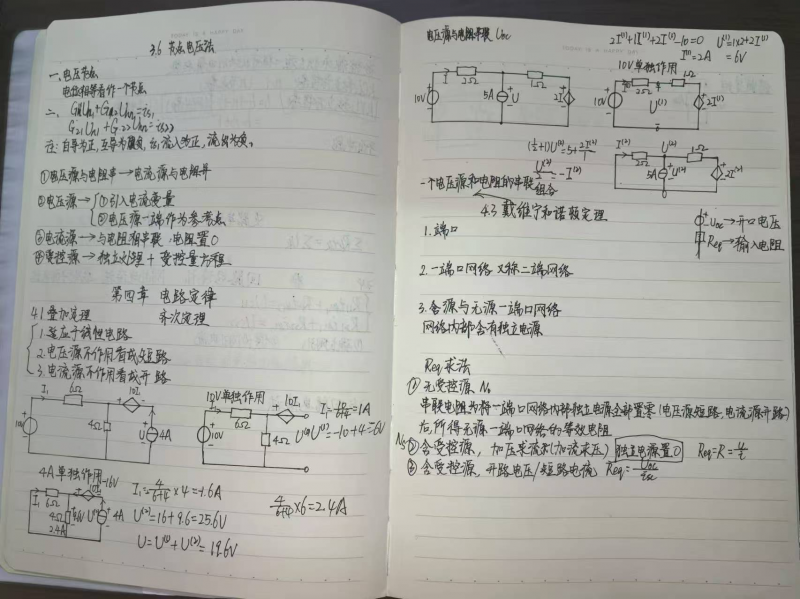 3.6 节点电压法
一、电压节点
电位相等看作一个节点
二、G11Un1+G12Un2=is11
G21Un1+G22Un2=is22
注:自导为正,互导为负,is流入为正,流出为负。
①电压源与电阻串→电流源与电阻并
②电压源→ ①引入电流变量
②电压源一端作为参考点
③电流源→与电阻相串联,电阻置0
④受控源→独立处理+受控量方程
第四章 电路定律
4.1 叠加定理 齐次定理
1.适应于线性电路
2.电压源不作用看成短路
3.电流源不作用看成开路
I1 6Ω 10I1
10V 4Ω U 4A
10V单独作用
I1 6Ω 10I1
10V 4Ω U(1)
I1=10/(6+4)=1A
U(1)=-10+4=-6V
4A单独作用
I1 6Ω 10I1 -16V
4Ω 2.4A 9.6V U(2) 4A
I1=-4/(6+4)×4=-1.6A
U(2)=16+9.6=25.6V
U=U(1)+U(2)=19.6V
4/(6+4)×6=2.4A
电压源与电阻串联 Uoc
2I(1)+1I(1)+2I(1)-10=0 U(1)=1×2+2I(1)
I(1)=2A =6V
I 2Ω 1Ω
10V 5A U 2I
10V单独作用
2Ω 1Ω
10V U(1) 2I(1)
(1/2+1)U(2)=5+2I(2)/1
U(2)/2=-I(2)
I(2) 2Ω U(2) 1Ω
5A U(2) 2I(2)
一个电压源和电阻的串联组合
4.3 戴维宁和诺顿定理
Uoc→开口电压
Req→输入电阻
1.端口
2.一端口网络 又称二端网络
3.含源与无源一端口网络
网络内部含有独立电源
Req求法
①无受控源 No
串联电阻为将一端口网络内部独立电源全部置零(电压源短路,电流源开路)
后,所得无源一端口网络的等效电阻
Ns ②含受控源,加压求流法(加流求压) 独立电源置0 Req=R=u/i
③含受控源,开路电压/短路电流 Req=Uoc/isc